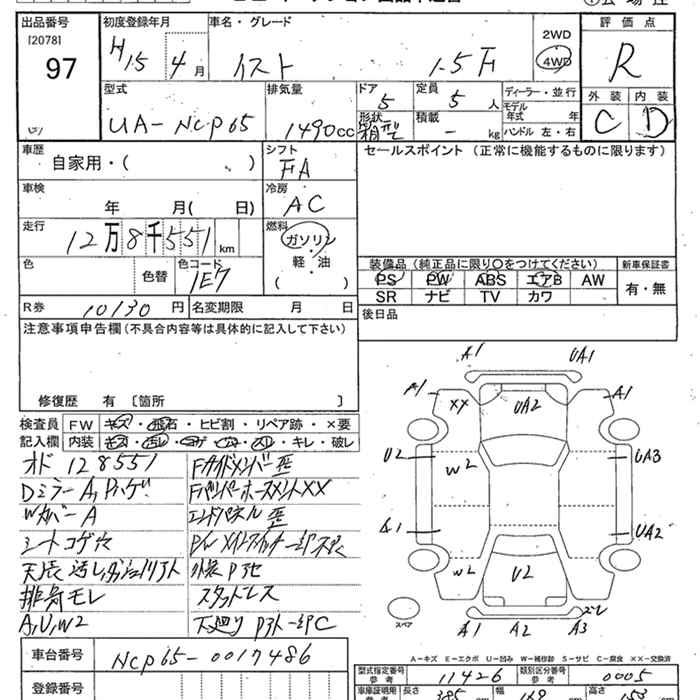 出品番号 初度登録年月 車名・グレード 2WD 評価点
[2078] 97 H15 4月 イスト 1.5 F 4WD R
型式 排気量 ドア 定員 ディーラー・並行 外装 内装
UA-NCP65 1490cc 5 5人 モデル年式 年 C D
形状 箱型 積載 - kg ハンドル 左・右
車歴 シフト セールスポイント (正常に機能するものに限ります)
自家用・( ) FA
車検 冷房
年 月( 日) AC
走行 燃料
12万8千551km ガソリン・軽・油 ( )
色 色替 色コード 装備品 (純正品に限り○をつけてください) 新車保証書
1E7 PS PW ABS エアB AW 有・無
SR ナビ TV カワ
R券 10130円 名変期限 月 日 後日品
注意事項申告欄(不具合内容等は具体的に記入して下さい)
修復歴 有 〔箇所 〕
検査員 FW キズ・飛石・ヒビ割・リペア跡・×要
記入欄 内装 キズ・汚レ・コゲ・穴・スレ・キレ・破レ
オド 128551 Fガイドメンバー歪
DミラーA,Pハゲ FバンパーホースメントXX
WカバーA エンドパネル 歪
シートコゲ穴
天張 汚レ
排気モレ スタッドレス
A,U,W2 下廻り Pヌケ一部C
A1 UA1
A1 XX UA2 A1
U2 W2 UA3
A1 UA2
W2 U2 W2
スペア ズレ
A1 A2 A3
A-キズ E-エクボ U-凹み W-補修跡 S-サビ C-腐食 XX-交換済
車台番号 NCP65-0017486 型式指定番号 参考 11426 類別区分番号 参考 0005
登録番号 車庫証明用 参考 長さ 385 幅 169 高さ 153